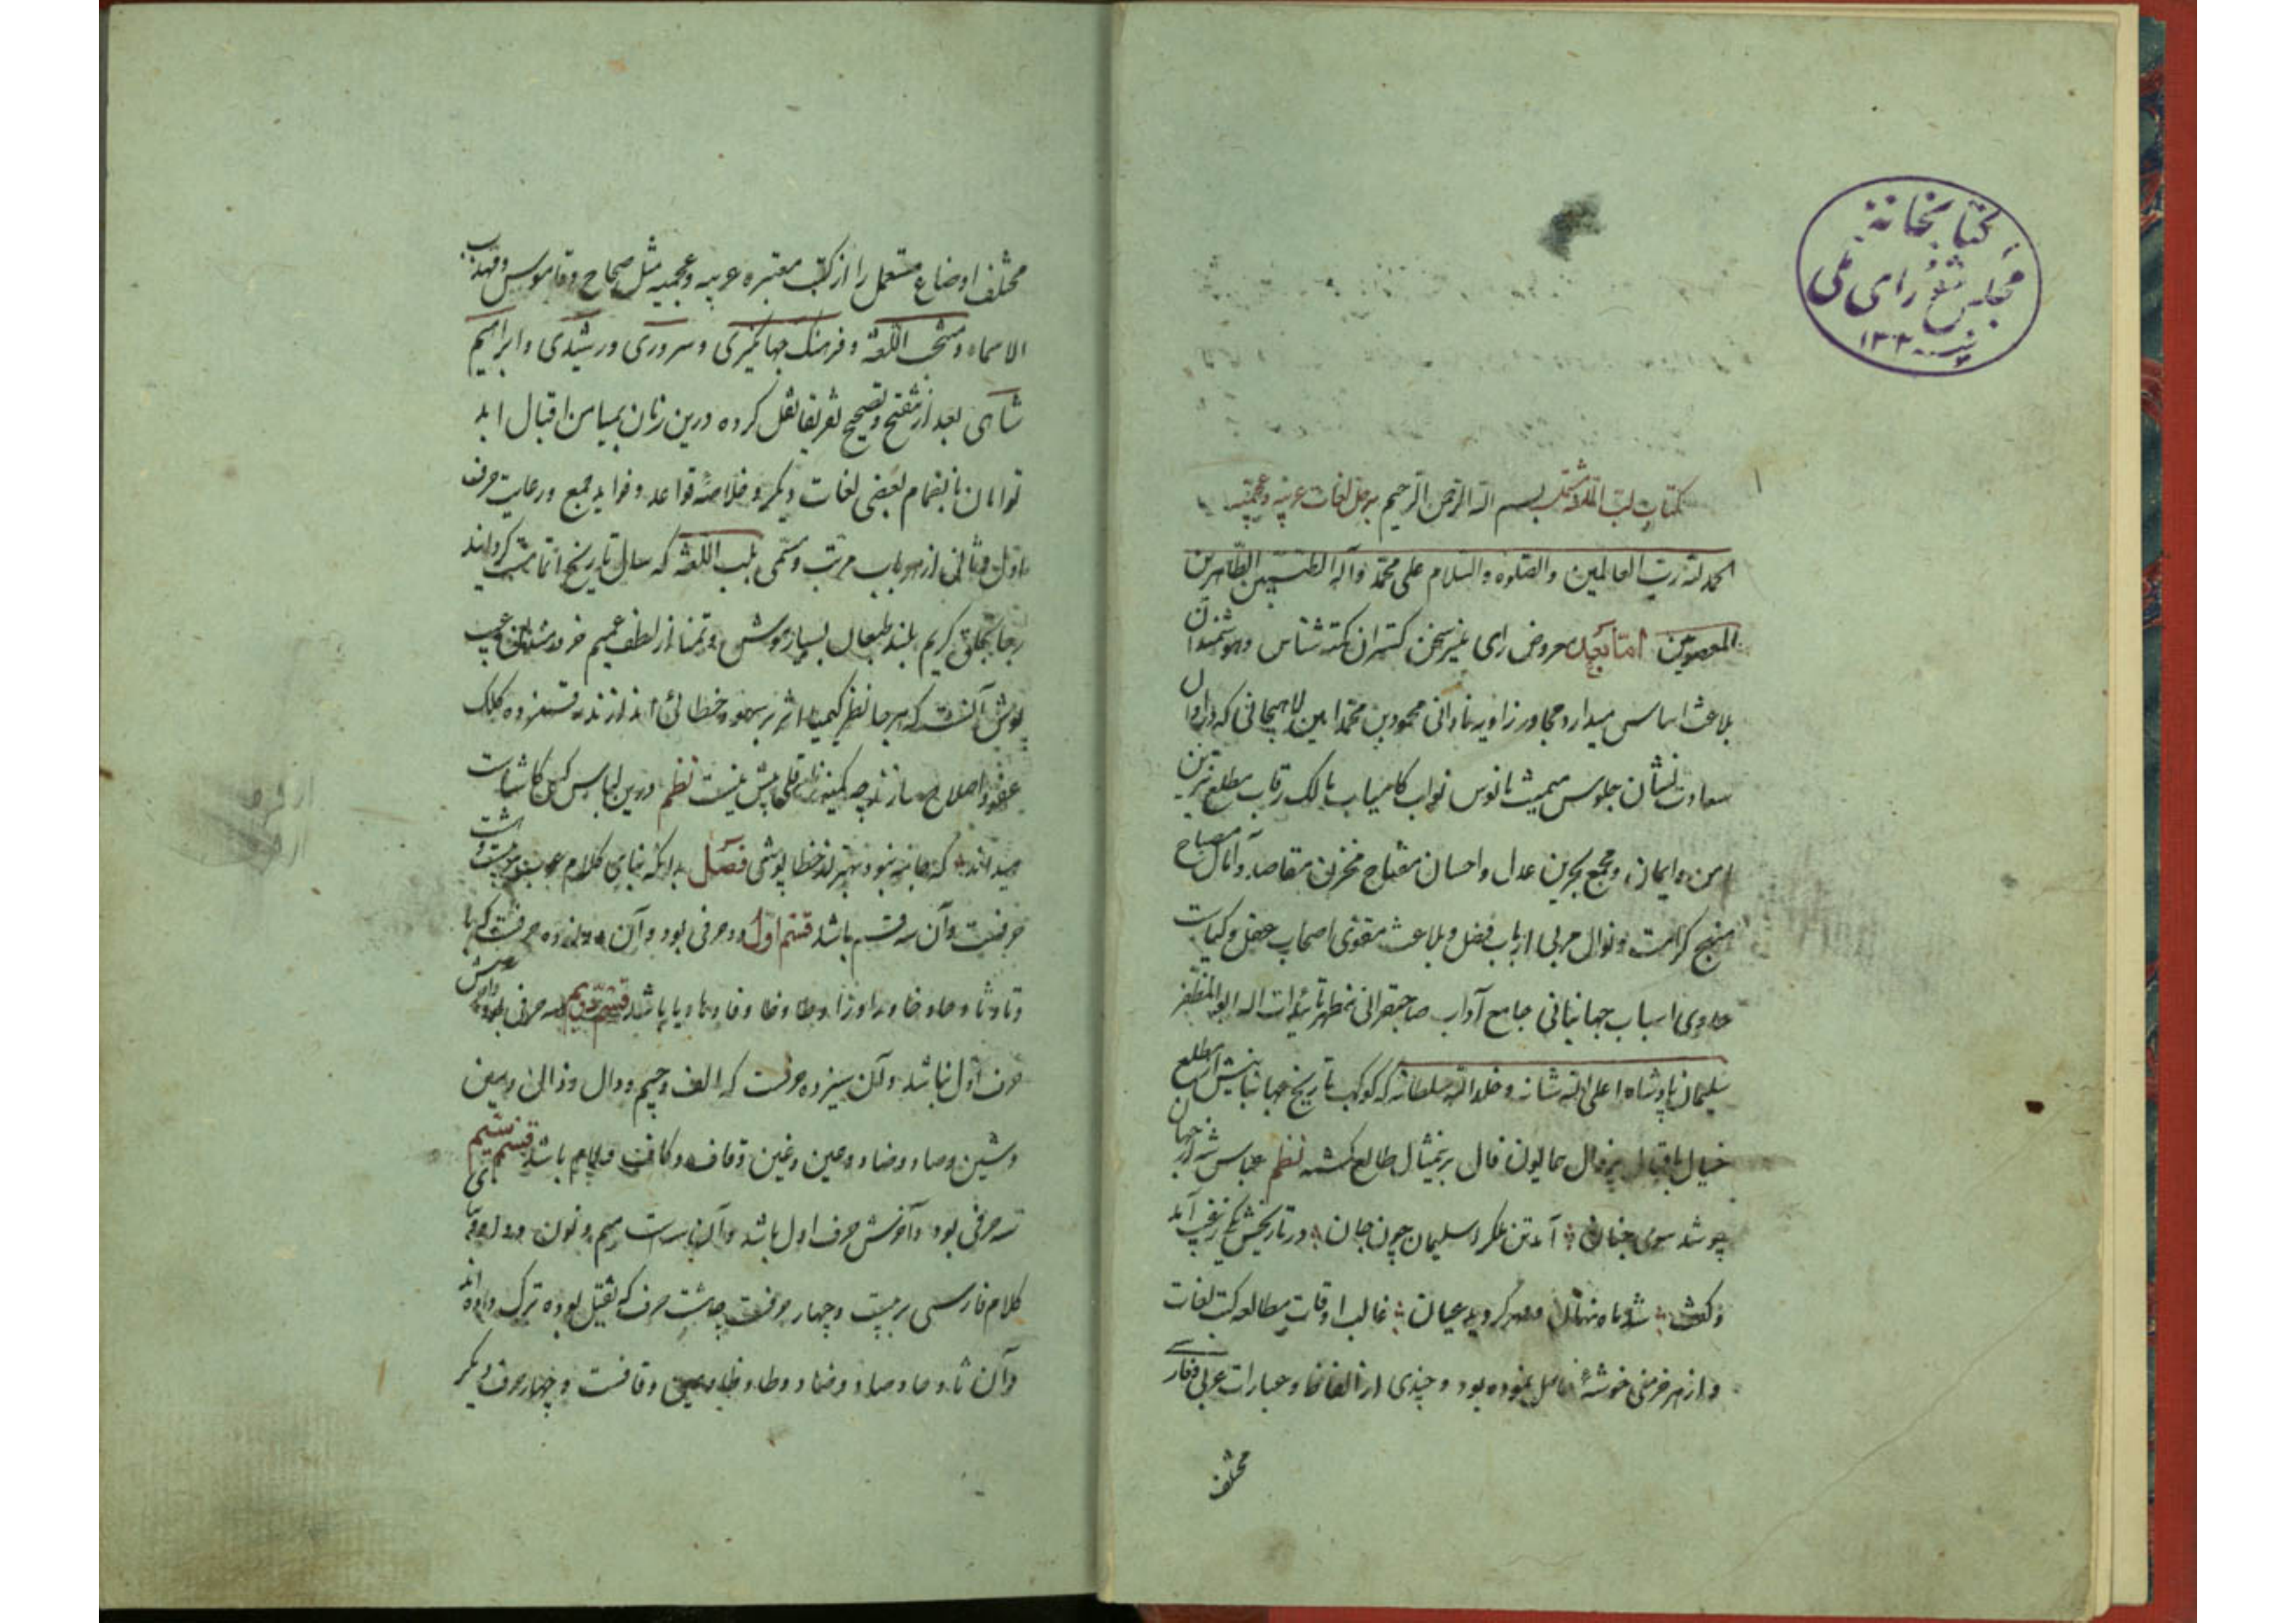 کتابخانه
مجلس شورای ملی
۱۳۳
کتاب لب اللغة مشتمل بسم الله الرحمن الرحیم بر حل لغات عربیه و عجمیه
الحمد لله رب العالمین والصلوة والسلام علی محمد وآله الطیبین الطاهرین
المعصومین اما بعد معروض رای سخن گستران نکته شناس و هوشمندان
بلاغت اساس میدارد مجاور زاویه نادانی محمود بن محمد امین لاهیجانی که در اوان
سعادت نشان جلوس میمنت مانوس نواب کامیاب مالک رقاب مطلع نیرین
امن و ایمان و مجمع بحرین عدل و احسان مفتاح مخزن مقاصد و آمال مصباح
منهج کرامت و نوال مربی ارباب فضل و بلاغت مقوی اصحاب عقل و کیاست
حاوی اسباب جهانبانی جامع آداب صاحبقرانی مظهر تائیدات اله ابو المظفر
سلیمان پادشاه اعلی الله شانه و خلد الله سلطانه که کوکب تاریخ جهانبانیش از مطلع
خیال باقبال همایون فال بر تمثال طالع گشته نظم عباس شه از جهان
چو شد سوی جنان آمد تن ملک را سلیمان چون جان در تاریخش یکی ز غیب آمد
و گفت شد ماه نهان مهر گردید عیان غالب اوقات بمطالعه کتب لغات
و از هر خرمنی خوشهٔ حاصل نموده بود و چندی از الفاظ و عبارات عربی و فارسی
مختلف
مختلف اوضاع مستعمل را از کتب معتبره عربیه و عجمیه مثل صحاح و قاموس و مهذب
الاسماء و منتخب اللغة و فرهنگ جهانگیری و سروری و رشیدی و ابراهیم
شاهی بعد از تنقیح و تصحیح نقل کرده درین زمان بمیامن اقبال ابد
توامان بانضمام بعضی لغات دیگر و خلاصهٔ قواعد و فواید جمع و رعایت حرف
اول و ثانی از هر باب مرتب و مسمی بلب اللغة که سال تاریخ اتمامست گرداند
رجا بخلق کریم بلند طبعان بسیار هوش و تمنا از لطف عمیم خردمندان عیب
پوش آنست که هر جا نظر کیمیا اثر بر سهو و خطائی اندازند کلک
عفو و اصلاح سازند چه کمینه را پیش نیست نظم درین لباس کسی کاشات
میدانند که جامه نبود بهتر از خطا پوشی فصل بدانکه بنای کلام عرب بر بیست و هشت
حرفست و آن سه قسم باشد قسم اول دو حرفی بود و آن دوازده حرفست که با
و تا و ثا و حا و خا و را و زا و طا و ظا و فا و ها و یا باشد قسم دویم سه حرفی بود و آخرش
حرف اول نباشد و آن سیزده حرفست که الف و جیم و دال و ذال و سین
و شین و صاد و ضاد و عین و غین و قاف و کاف و لام باشد قسم سیم
سه حرفی بود و آخرش حرف اول باشد و آن سه است میم و نون و واو و بنای
کلام فارسی بر بیست و چهار حرفست چه هشت حرف که ثقیل بوده ترک داده اند
و آن ثا و حا و صاد و ضاد و طا و ظا و عین و قافست و چهار حرف دیگر